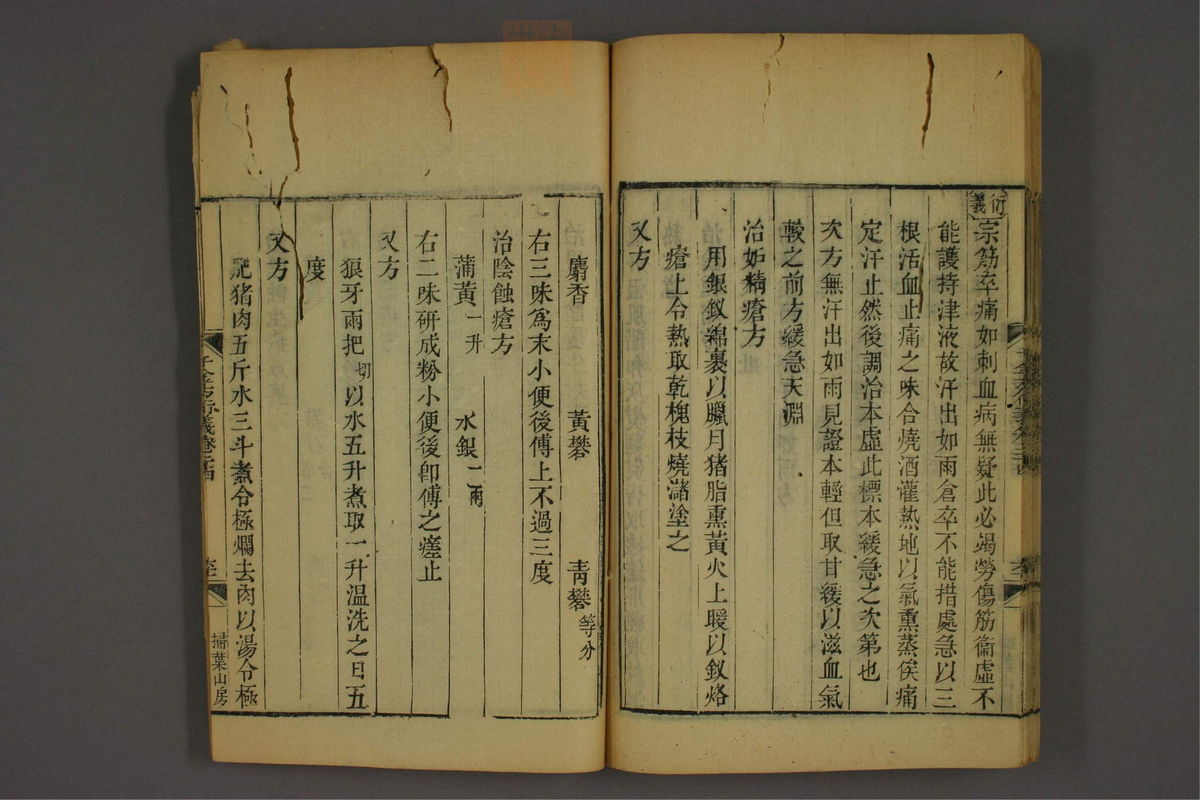 衍義
宗筋卒痛如刺血病無疑此必竭勞傷筋衞虛不
能護持津液故汗出如雨倉卒不能措處急以三
根活血止痛之味合燒酒灌熱地以氣熏蒸俟痛
定汗止然後調治本虛此標本緩急之次第也
次方無汗出如雨見證本輕但取甘緩以滋血氣
較之前方緩急天淵
治妬精瘡方
用銀釵綿裹以臘月猪脂熏黃火上暖以釵烙
瘡上令熱取乾槐枝燒瀦塗之
又方
麝香 黃礬 青礬等分
右三味爲末小便後傅上不過三度
治陰蝕瘡方
蒲黃一升 水銀一兩
右二味研成粉小便後卽傅之瘥止
又方
狼牙兩把切 以水五升煮取一升溫洗之日五
度
又方
肥猪肉五斤水三斗煮令極爛去肉以湯令極
千金方衍義卷二十四
掃葉山房